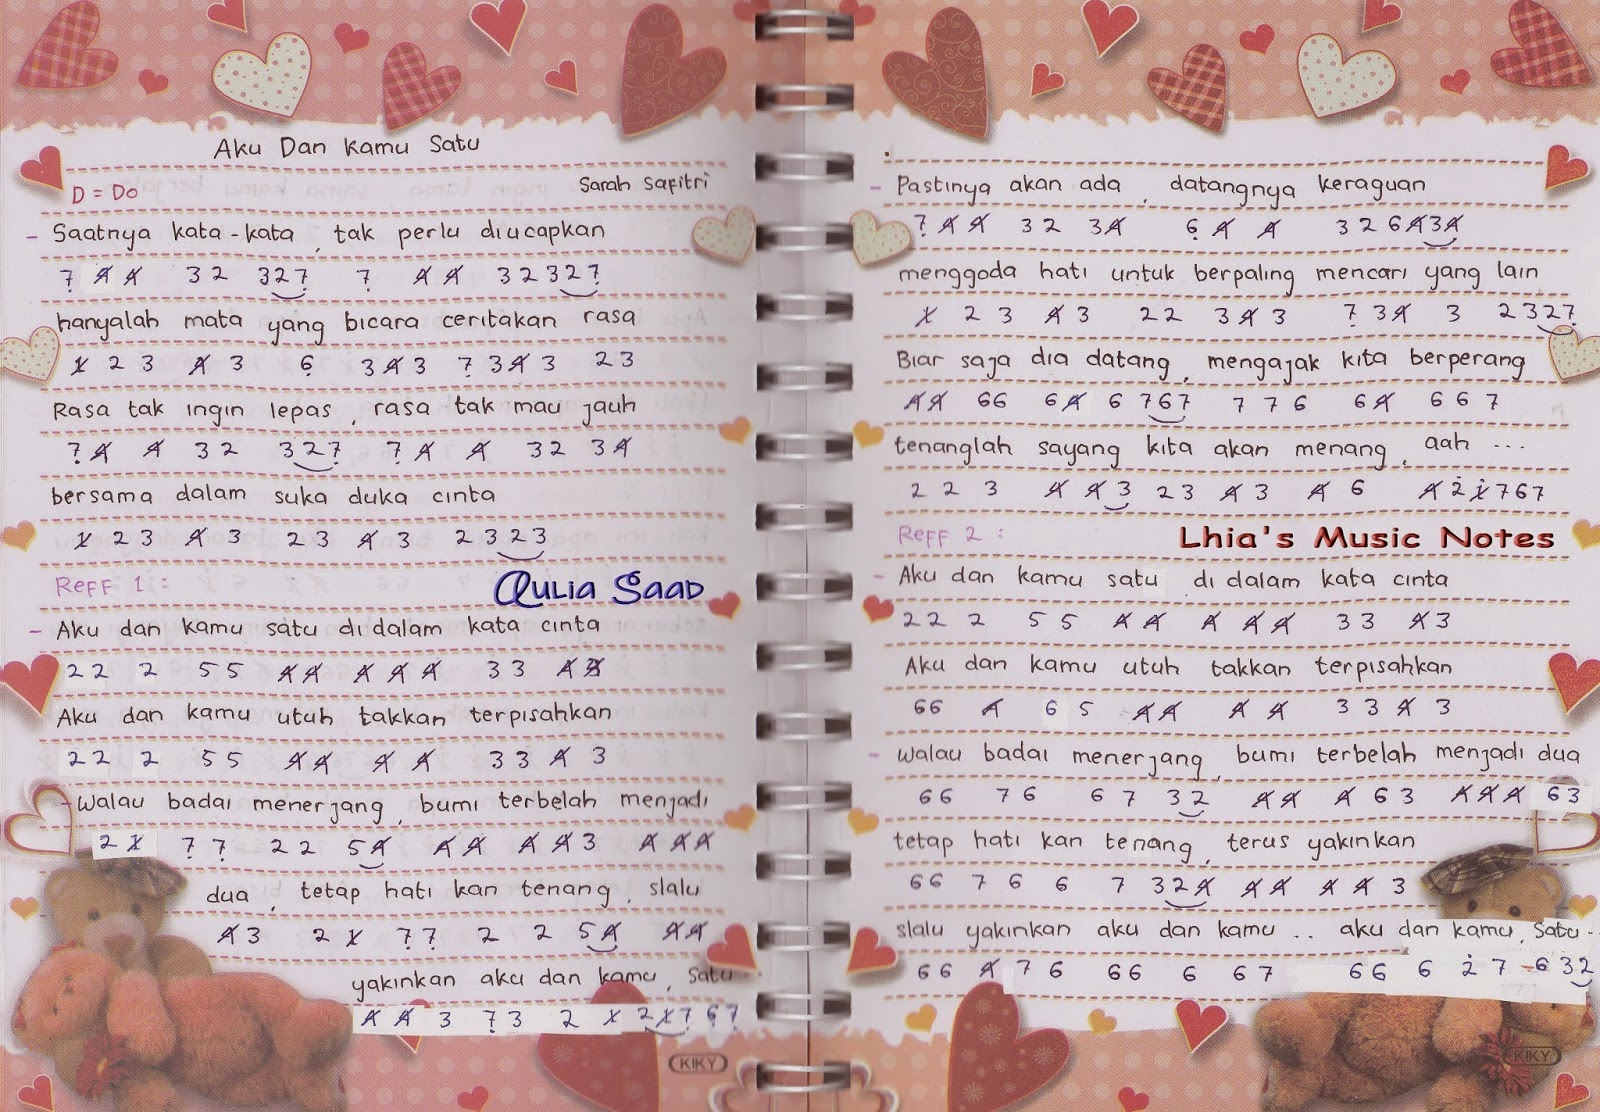 Aku Dan Kamu Satu
D = Do
Sarah Safitri
- Saatnya kata-kata, tak perlu diucapkan
7 4 4 3 2 3 2 7 7 4 4 3 2 3 2 7
hanyalah mata yang bicara ceritakan rasa
1 2 3 4 3 6 3 4 3 7 3 4 3 2 3
Rasa tak ingin lepas, rasa tak mau jauh
7 4 4 3 2 3 2 7 7 4 4 3 2 3 4
bersama dalam suka duka cinta
1 2 3 4 3 2 3 4 3 2 3 2 3
Reff 1 :
Aulia Saad
- Aku dan kamu satu didalam kata cinta
2 2 2 5 5 4 4 4 4 4 3 3 4
Aku dan kamu utuh takkan terpisahkan
2 2 2 5 5 4 4 4 4 3 3 4 3
- walau badai menerjang, bumi terbelah menjadi
2 1 7 7 2 2 5 4 4 4 4 4 3 4 4 4
dua, tetap hati kan tenang, slalu
4 3 2 1 7 7 2 2 5 4 4 4
yakinkan aku dan kamu, satu
4 4 3 7 3 2 1 2 1 7 6 7
KIKY
- Pastinya akan ada, datangnya keraguan
7 4 4 3 2 3 4 6 4 4 3 2 6 4 3 4
menggoda hati untuk berpaling mencari yang lain
1 2 3 4 3 2 2 3 4 3 7 3 4 3 2 3 2 7
Biar saja dia datang, mengajak kita berperang
4 4 6 6 6 4 6 7 6 7 7 7 6 6 4 6 6 7
tenanglah sayang kita akan menang, aah ...
2 2 3 4 4 3 2 3 4 3 4 6 4 2 1 7 6 7
Reff 2 :
Lhia's Music Notes
- Aku dan kamu satu di dalam kata cinta
2 2 2 5 5 4 4 4 4 4 3 3 4 3
Aku dan kamu utuh takkan terpisahkan
6 6 4 6 5 4 4 4 4 3 3 4 3
- walau badai menerjang, bumi terbelah menjadi dua
6 6 7 6 6 7 3 2 4 4 4 6 3 4 4 4 6 3
tetap hati kan tenang, terus yakinkan
6 6 7 6 6 7 3 2 4 4 4 4 4 3
slalu yakinkan aku dan kamu .. aku dan kamu, satu..
6 6 4 7 6 6 6 6 6 7 6 6 6 2 7 6 3 2
KIKY